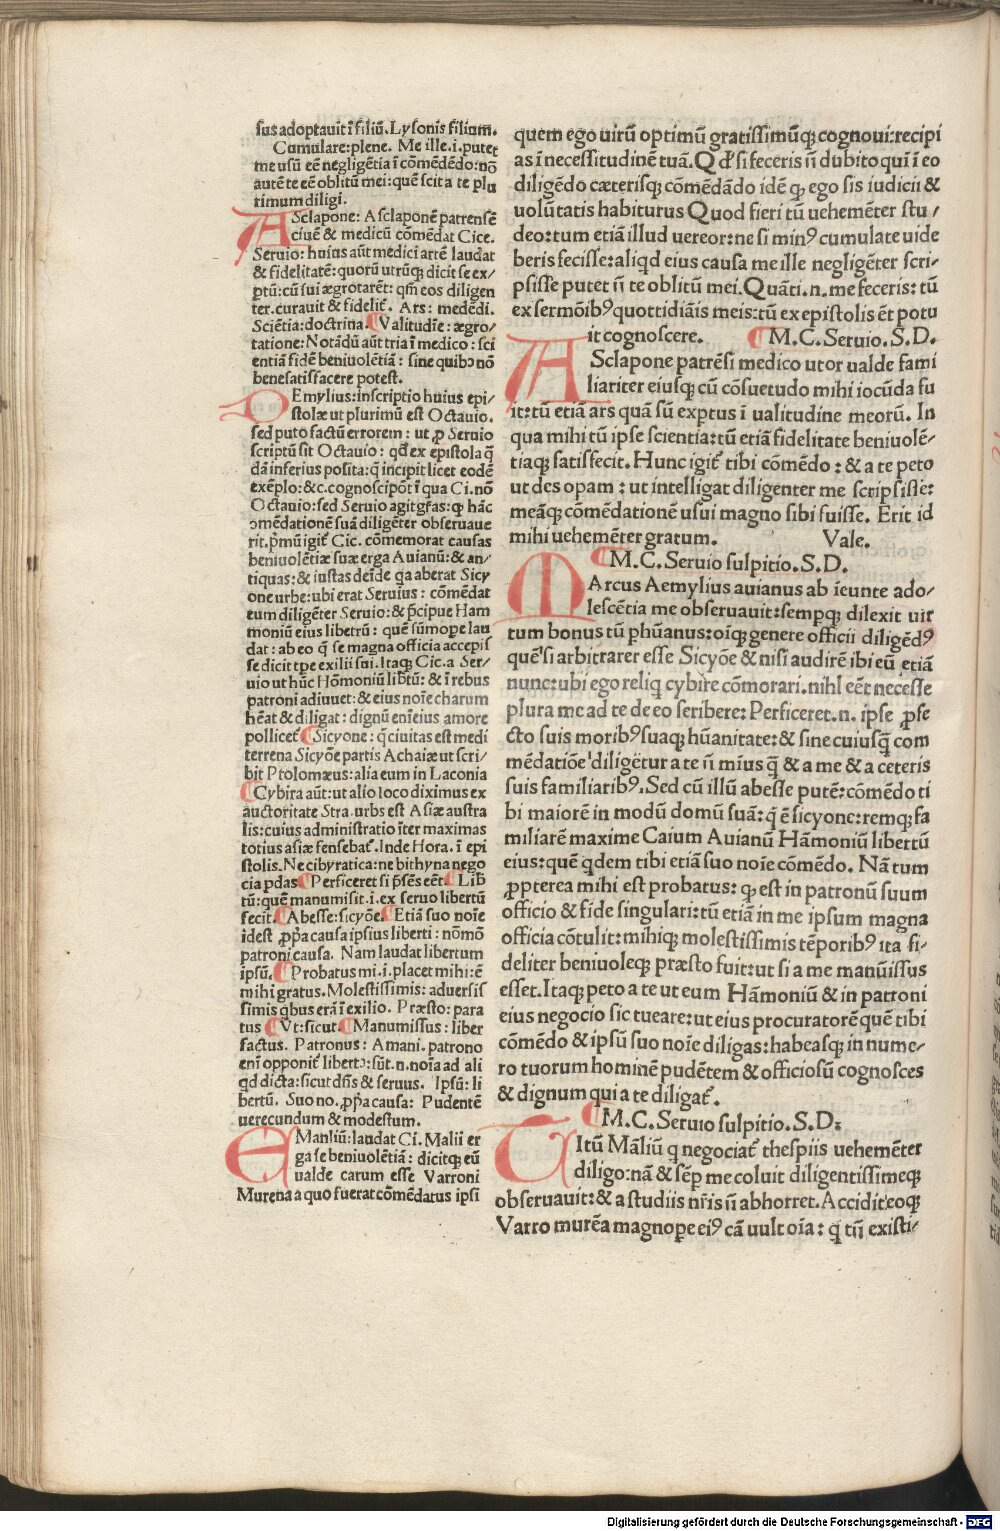 sus adoptauit ī filiū. Lysonis filium.
Cumulare: plene. Me ille .i. putet
me usū eē negligētia ī cōmēdēdo: nō
autē te eē oblitū mei: quē scit a te plu
rimum diligi.
ASclapone: Asclaponē patrensē
ciuē & medicū cōmēdat Cice.
Seruio: huius aūt medici artē laudat
& fidelitatē: quorū utrūq; dicit se ex/
ꝑtū: cū sui ægrotarēt: qm̄ eos diligen
ter. curauit & fidelit̄. Ars: medēdi.
Sciētia: doctrina. ¶Valitudīe: ægro/
tatione: Notādū aūt tria ī medico: sci
entiā fidē beniuolētiā: sine quibꝰ nō
benesatisfacere potest.
DEmylius: inscriptio huius epi/
stolæ ut plurimū est Octauio.
sed puto factū errorem: ut ꝓ Seruio
scriptū sit Octauio: qd̄ ex epistola q̄
dā inferius posita: q̄ incipit licet eodē
exēplo: &c. cognosci pōt ī qua Ci. nō
Octauio: sed Seruio agit gr̄as: ꝙ hāc
ꝯmēdationē suā diligēter obseruaue
rit. p̄mū igit̄ Cic. cōmemorat causas
beniuolētiæ suæ erga Auianū: & an/
tiquas: & iustas deīde q̄a aberat Sicy
one urbe: ubi erat Seruius: cōmēdat
eum diligēter Seruio: & p̄cipue Ham
moniū eius libertū: quē sūmope lau
dat: ab eo q̄ se magna officia accepis
se dicit tp̄e exilii sui. Itaq; Cic. a Ser/
uio ut hūc Hāmoniū lib̄tū: & ī rebus
patroni adiuuet: & eius noīe charum
hēat & diligat: dignū enī eius amore
pollicet̄ ¶Sicyone: q̄ ciuitas est medi
terrena Sicyōe partis Achaiæ ut scri/
bit Ptolomæus: alia eum in Laconia
¶Cybira aūt: ut alio loco diximus ex
auctoritate Stra. urbs est Asiæ austra
lis: cuius administratio īter maximas
totius asiæ sensebat̄. Inde Hora. ī epi
stolis. Ne cibyratica: ne bithyna nego
cia pdas ¶Perficeret si p̄sēs eēt ¶Lib̄
tū: quē manumisit .i. ex seruo libertū
fecit. ¶Abesse: sicyōe. ¶Etiā suo noīe
idest ꝓp̄a causa ipsius liberti: nō mō
patroni causa. Nam laudat libertum
ipsū. ¶Probatus mi .i. placet mihi: ē
mihi gratus. Molestissimis: aduersis
simis q̄bus erā ī exilio. Præsto: para
tus ¶Vt: sicut. ¶Manumissus: liber
factus. Patronus: A mani. patrono
enī opponit̄ libertꝰ: sūt .n. noīa ad ali
qd dicta: sicut dn̄s & seruus. Ipsū: li
bertū. Suo no. ꝓp̄a causa: Pudentē
uerecundum & modestum.
EManliū: laudat Ci. Malii er
ga se beniuolētiā: dicitq; eū
ualde carum esse Varroni
Murena a quo fuerat cōmēdatus ipsi
quem ego uirū optimū gratissimūq; cognoui: recipi
as ī necessitudinē tuā. Qd̄ si feceris nō dubito quī ī eo
diligēdo cæterisq; cōmēdādo idē ꝙ ego sis iudicii &
uolūtatis habiturus Quod fieri tū uehemēter stu/
deo: tum etiā illud uereor: ne si minꝰ cumulate uide
beris fecisse: aliqd eius causa me ille negligēter scri/
psisse putet nō te oblitū mei. Quāti .n. me feceris: tū
ex sermōibꝰ quottidiāis meis: tū ex epistolis ēt potu
it cognoscere. ¶M.C. Seruio. S.D.
ASclapone patrēsi medico utor ualde fami
liariter eiusq; cū cōsuetudo mihi iocūda fu
it: tū etiā ars quā sū exptus ī ualitudine meorū. In
qua mihi tū ipse scientia: tū etiā fidelitate beniuolē/
tiaq; satisfecit. Hunc igit̄ tibi cōmēdo: & a te peto
ut des opam: ut intelligat diligenter me scripsisse:
meāq; cōmēdationē usui magno sibi fuisse. Erit id
mihi uehemēter gratum. Vale.
¶M.C. Seruio sulpitio. S.D.
MArcus Aemylius auianus ab īeunte ado/
lescētia me obseruauit: sempq; dilexit uir
tum bonus tū phūanus: oīq; genere officii diligēdꝰ
quē si arbitrarer esse Sicyōe & nisi audirē ibi eū etiā
nunc: ubi ego reliq cybire cōmorari. nihl eēt necesse
plura me ad te de eo scribere: Perficeret .n. ipse ꝓfe
cto suis moribꝰ suaq; hūanitate: & sine cuiusq̄ com
mēdatiōe diligētur a te nō mīus q̄ & a me & a ceteris
suis familiaribꝰ. Sed cū illū abesse putē: cōmēdo ti
bi maiorē in modū domū suā: q̄ ē sicyone: remq; fa
miliarē maxime Caium Auianū Hāmoniū libertū
eius: quē q̄dem tibi etiā suo noīe cōmēdo. Nā tum
ꝓpterea mihi est probatus: ꝙ est in patronū suum
officio & fide singulari: tū etiā in me ipsum magna
officia cōtulit: mihiq; molestissimis tēporibꝰ ita fi/
deliter beniuoleq; præsto fuit: ut si a me manūissus
esset. Itaq; peto a te ut eum Hāmoniū & in patroni
eius negocio sic tueare: ut eius procuratorē quē tibi
cōmēdo & ipsū suo noīe diligas: habeasq; in nume/
ro tuorum hominē pudētem & officiosū cognosces
& dignum qui a te diligat̄.
¶M.C. Seruio sulpitio. S.D:
TItū Māliū q negociat̄ thespiis uehemēter
diligo: nā & sēp me coluit diligentissimeq;
obseruauit: & a studiis nr̄is nō abhorret. Accidit eoq;
Varro murēa magnope eiꝰ cā uult oīa: q̄ tn̄ existi/
Digitalisierung gefördert durch die Deutsche Forschungsgemeinschaft - DFG